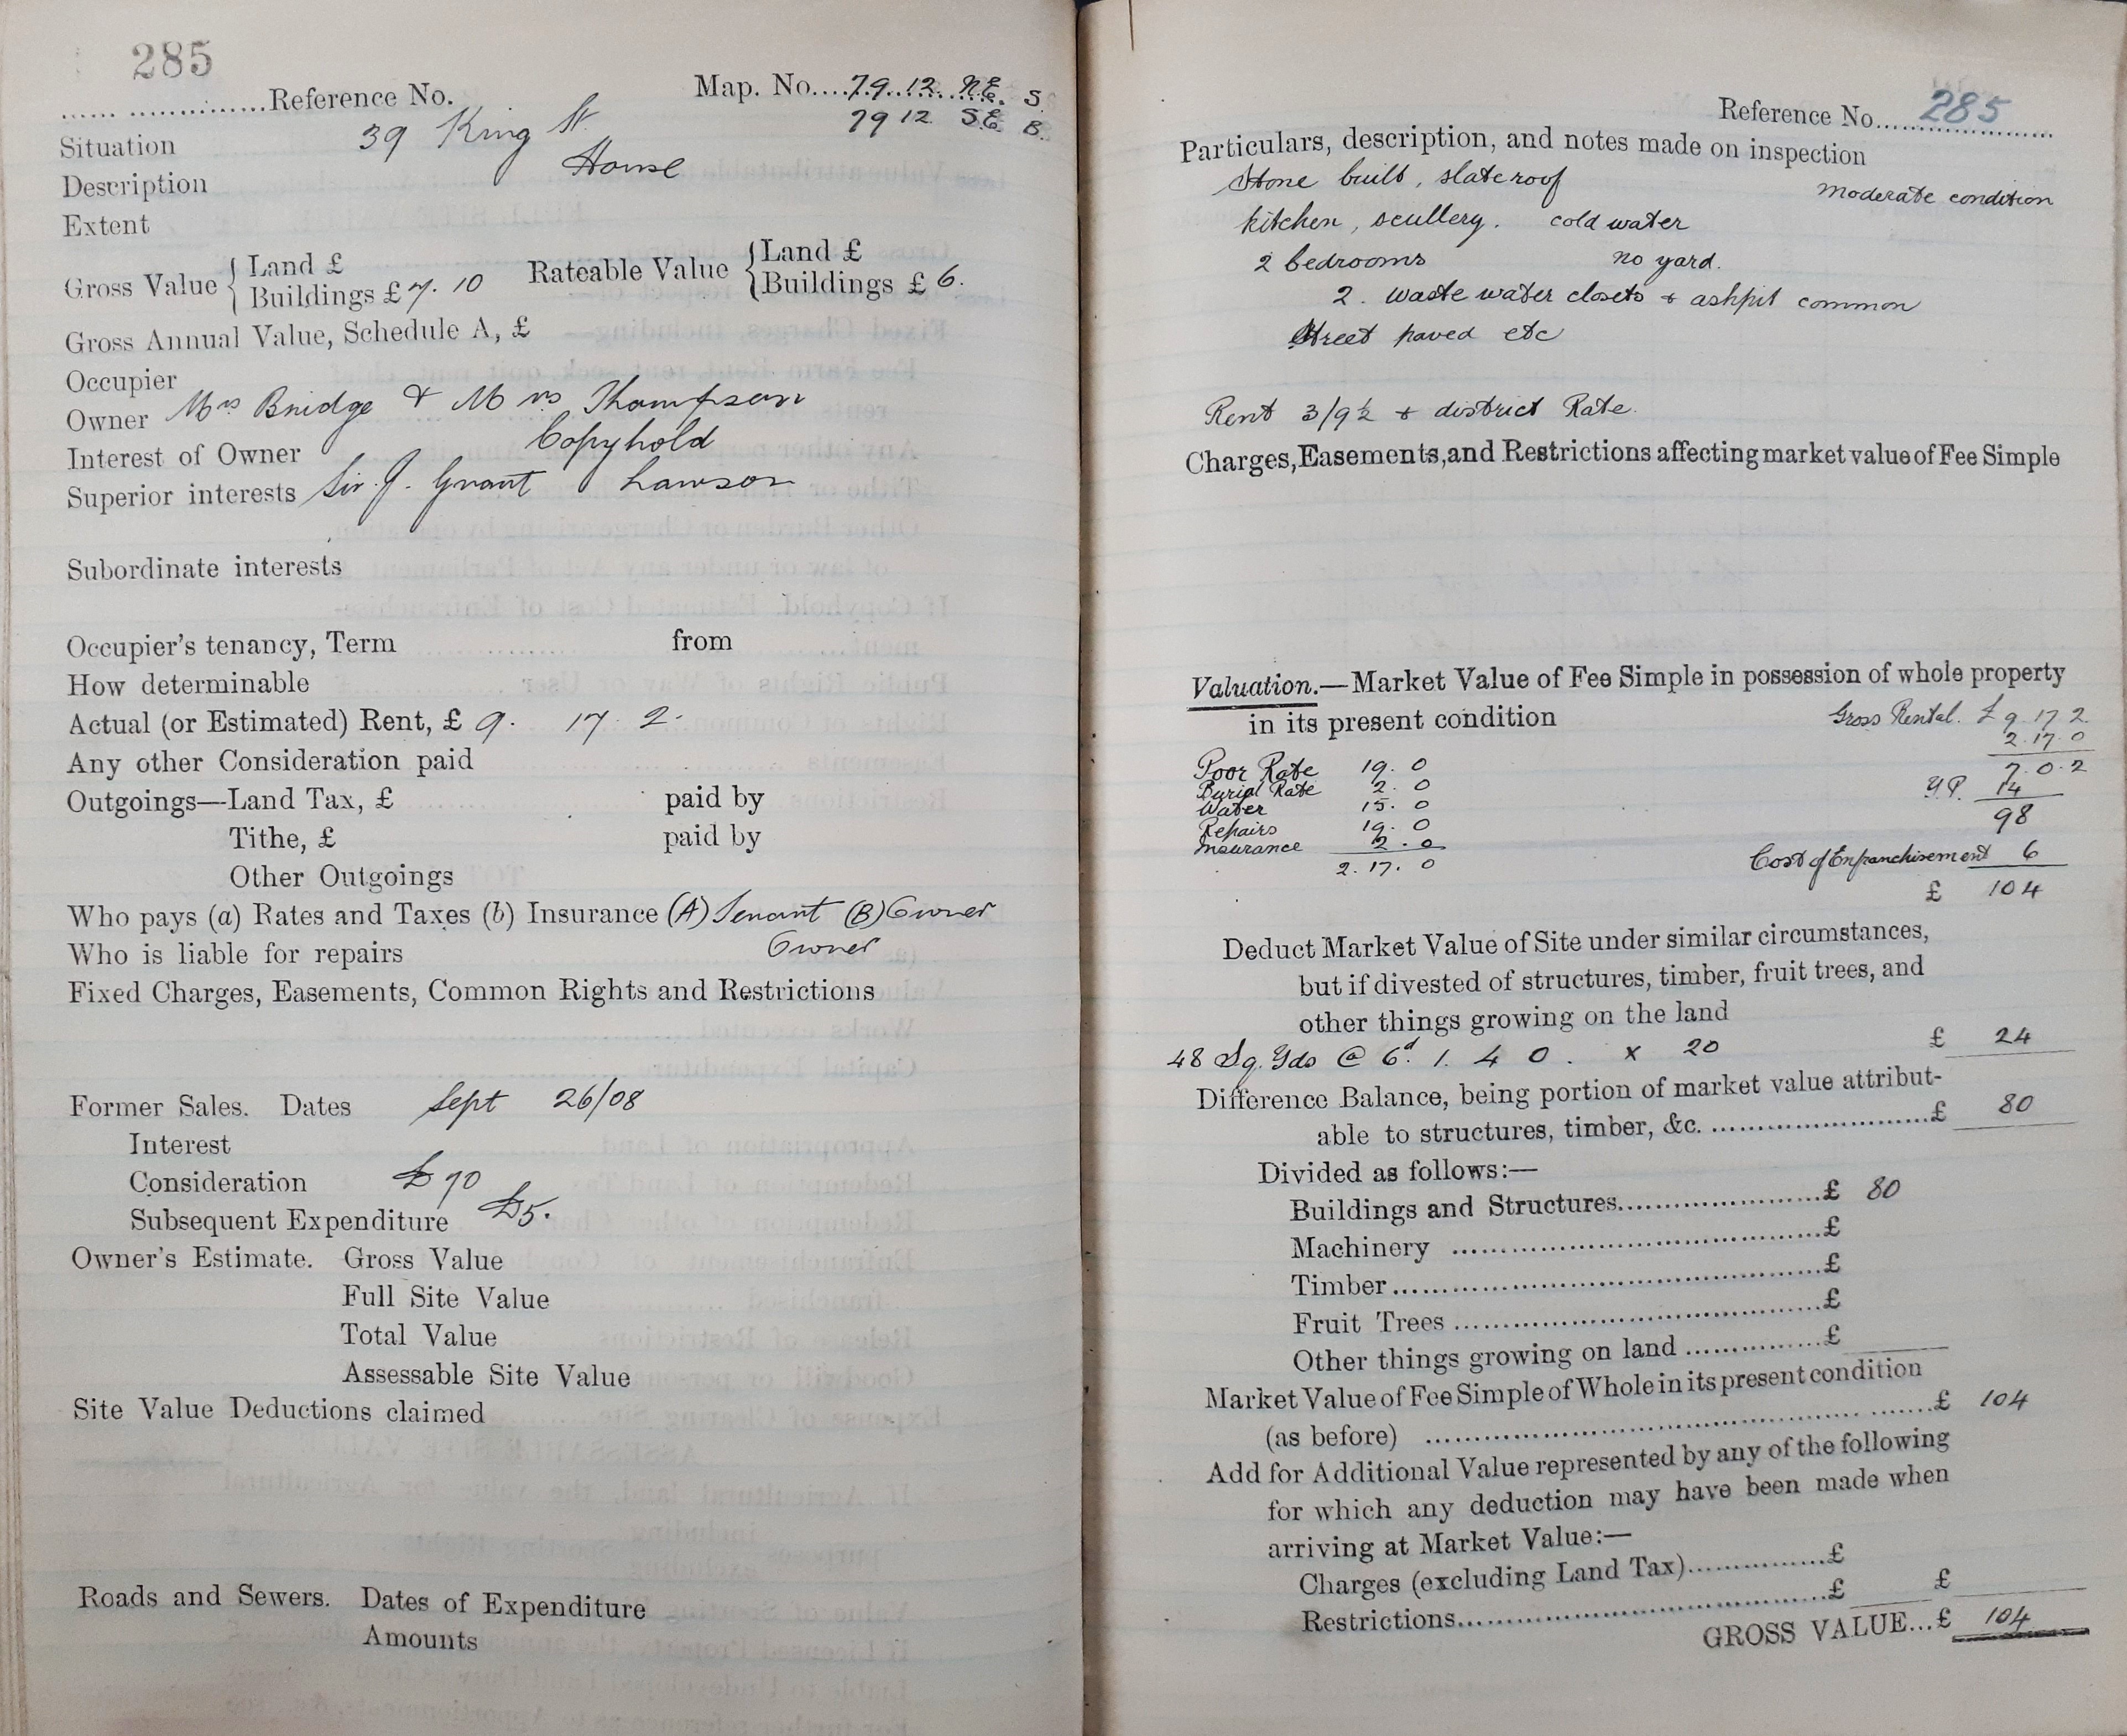 285
Reference No. Map. No. 79. 12. N.E. S.
79 12 S.E. B.
Situation 39 King St
Description House
Extent
Gross Value { Land £
Buildings £ 7. 10
Rateable Value { Land £
Buildings £ 6.
Gross Annual Value, Schedule A, £
Occupier
Owner Mrs Bridge & Mrs Thompson
Interest of Owner Copyhold
Superior interests Sir. J. Grant Lawson
Subordinate interests
Occupier's tenancy, Term from
How determinable
Actual (or Estimated) Rent, £ 9. 17. 2.
Any other Consideration paid
Outgoings—Land Tax, £ paid by
Tithe, £ paid by
Other Outgoings
Who pays (a) Rates and Taxes (b) Insurance (A) Tenant (B) Owner
Who is liable for repairs Owner
Fixed Charges, Easements, Common Rights and Restrictions
Former Sales. Dates Sept 26/08
Interest
Consideration £90
Subsequent Expenditure £5.
Owner's Estimate. Gross Value
Full Site Value
Total Value
Assessable Site Value
Site Value Deductions claimed
Roads and Sewers. Dates of Expenditure
Amounts
Reference No. 285
Particulars, description, and notes made on inspection
Stone built, slate roof moderate condition
kitchen, scullery. cold water
2 bedrooms no yard.
2. waste water closets & ashpit common
Street paved etc
Rent 3/9½ & district Rate.
Charges, Easements, and Restrictions affecting market value of Fee Simple
Valuation.—Market Value of Fee Simple in possession of whole property
in its present condition Gross Rental. £ 9. 17. 2
2. 17. 0
Poor Rate 19. 0 7. 0. 2
Burial Rate 2. 0 Y.P. 14
Water 15. 0 98
Repairs 19. 0
Insurance 2. 0 Cost of Enfranchisement 6
2. 17. 0 £ 104
Deduct Market Value of Site under similar circumstances,
but if divested of structures, timber, fruit trees, and
other things growing on the land
48 Sq. Yds @ 6d. 1. 4 0. x 20 £ 24
Difference Balance, being portion of market value attribut-
able to structures, timber, &c. £ 80
Divided as follows:—
Buildings and Structures £ 80
Machinery £
Timber £
Fruit Trees £
Other things growing on land £
Market Value of Fee Simple of Whole in its present condition
(as before) £ 104
Add for Additional Value represented by any of the following
for which any deduction may have been made when
arriving at Market Value:—
Charges (excluding Land Tax) £
Restrictions £ £
GROSS VALUE...£ 104